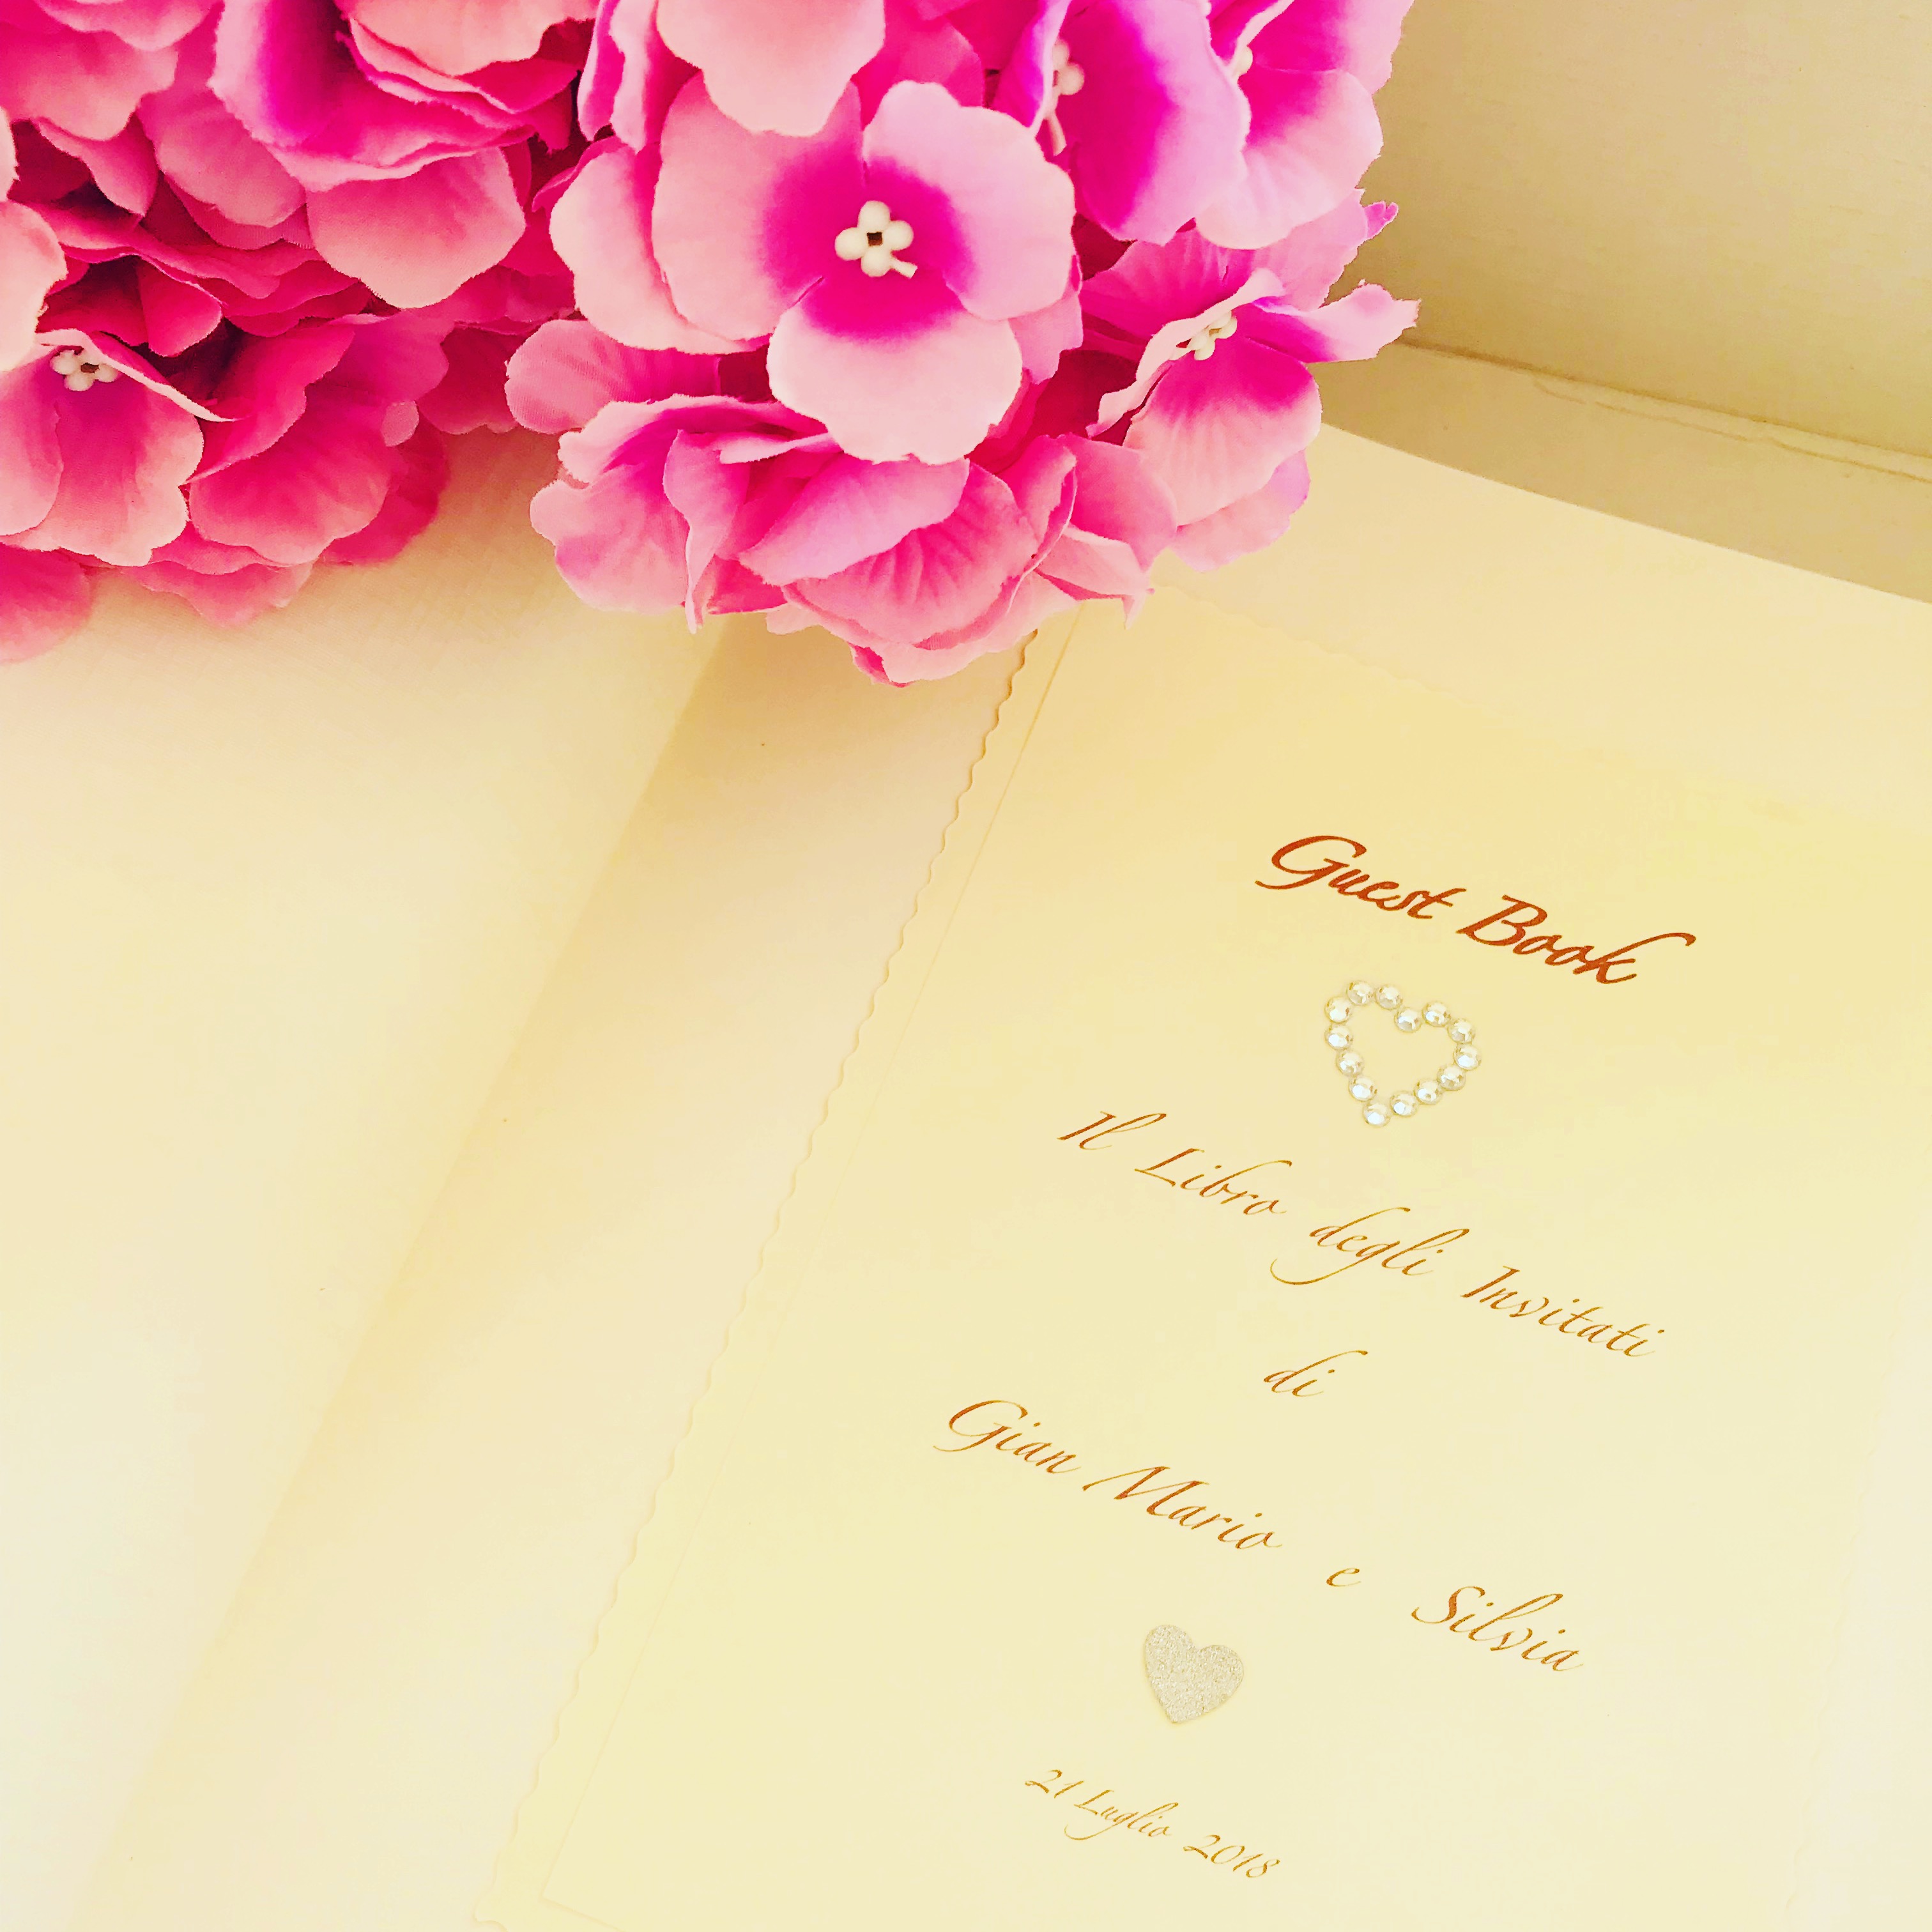 Guest Book
Il Libro degli Invitati
di
Gian Mario e Silvia
21 Luglio 2018